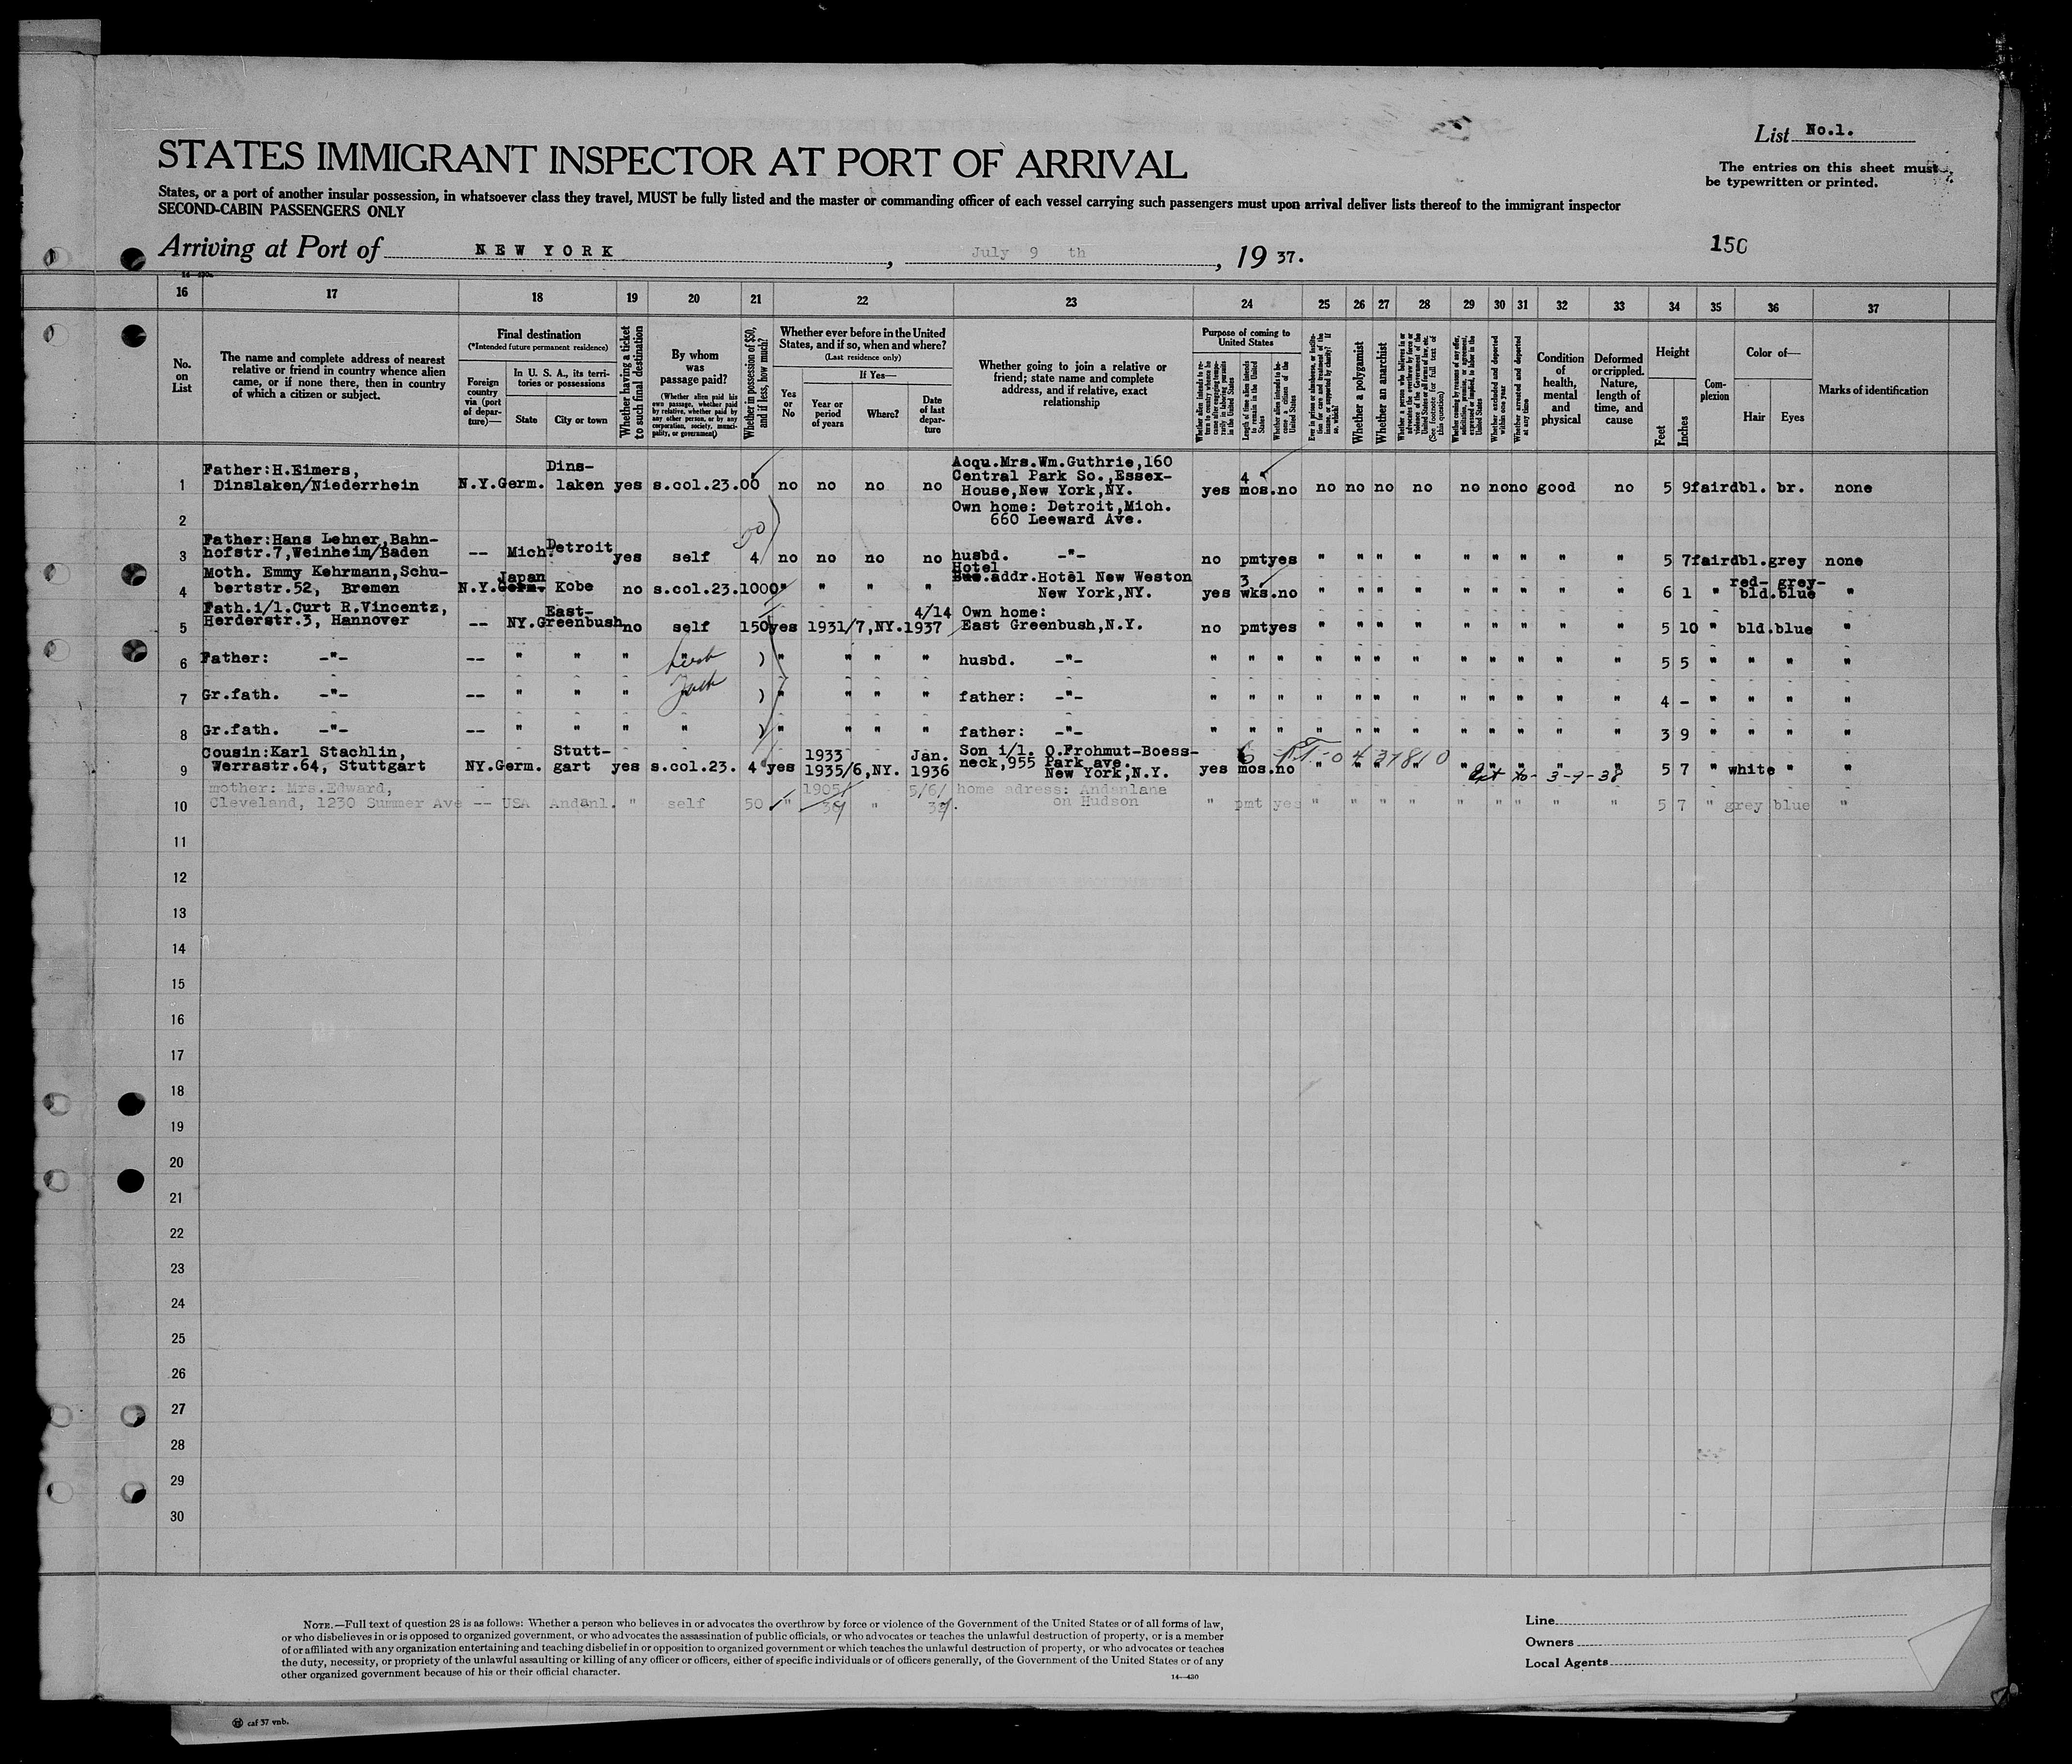 List No.1.
STATES IMMIGRANT INSPECTOR AT PORT OF ARRIVAL
The entries on this sheet must be typewritten or printed.
States, or a port of another insular possession, in whatsoever class they travel, MUST be fully listed and the master or commanding officer of each vessel carrying such passengers must upon arrival deliver lists thereof to the immigrant inspector
SECOND-CABIN PASSENGERS ONLY
Arriving at Port of NEW YORK, July 9 th, 19 37.
150
16 17 18 19 20 21 22 23 24 25 26 27 28 29 30 31 32 33 34 35 36 37
No. on List
The name and complete address of nearest relative or friend in country whence alien came, or if none there, then in country of which a citizen or subject.
Final destination
(*Intended future permanent residence)
Foreign country via (port of departure)—
In U. S. A., its territories or possessions
State
City or town
Whether having a ticket to such final destination
By whom was passage paid?
(Whether alien paid his own passage, whether paid by relative, whether paid by any other person, or by any corporation, society, municipality, or government)
Whether in possession of $50, and if less, how much?
Whether ever before in the United States, and if so, when and where?
(Last residence only)
Yes or No
If Yes—
Year or period of years
Where?
Date of last departure
Whether going to join a relative or friend; state name and complete address, and if relative, exact relationship
Purpose of coming to United States
Length of time alien intends to remain in the United States
Whether alien intends to become a citizen of the United States
Whether a polygamist
Whether an anarchist
Whether excluded and deported within one year
Whether arrested and deported at any time
Condition of health, mental and physical
Deformed or crippled. Nature, length of time, and cause
Height
Feet
Inches
Complexion
Color of—
Hair
Eyes
Marks of identification
1 Father:H.Eimers, Dinslaken/Niederrhein N.Y. Germ. Dins-laken yes s.col.23.00 no no no no Acqu.Mrs.Wm.Guthrie,160 Central Park So.,Essex-House,New York,NY. yes 4 mos. no no no no no no no no good no 5 9 fair dbl. br. none
2 Own home: Detroit,Mich. 660 Leeward Ave.
3 Father:Hans Lehner,Bahnhofstr.7,Weinheim/Baden -- Mich. Detroit yes self 50 4 no no no no husbd. -"- no pmt yes " " " " " " " " " 5 7 fair dbl. grey none
4 Moth. Emmy Kehrmann,Schubertstr.52, Bremen N.Y. Japan Germ. Kobe no s.col.23. 1000 " " " " Hotel addr.Hotel New Weston New York,NY. yes 3 wks. no " " " " " " " " " 6 1 " red-bld. grey-blue "
5 Fath.i/l.Curt R.Vincentz, Herderstr.3, Hannover -- NY. East-Greenbush no self 150 yes 1931/7,NY. 4/14 1937 Own home: East Greenbush,N.Y. no pmt yes " " " " " " " " " 5 10 " bld. blue "
6 Father: -"- -- " " " " ) " " " " husbd. -"- " " " " " " " " " " " " 5 5 " " " "
7 Gr.fath. -"- -- " " " ) " " " " father: -"- " " " " " " " " " " " " 4 - " " " "
8 Gr.fath. -"- -- " " " " ) " " " " father: -"- " " " " " " " " " " " " 3 9 " " " "
9 Cousin:Karl Stachlin, Werrastr.64, Stuttgart NY. Germ. Stutt-gart yes s.col.23. 4 yes 1933 1935/6,NY. Jan. 1936 Son i/l. O.Frohmut-Boess-neck,955 Park ave. New York,N.Y. yes 6 mos. no " " " " " " " " " 5 7 " white " "
10 mother: Mrs.Edward, Cleveland, 1230 Summer Ave -- USA Andanl. " self 50 " 1905/ " 5/6/ home adress: Andanlana on Hudson " pmt yes " " " " " " " " " 5 7 " grey blue "
11
12
13
14
15
16
17
18
19
20
21
22
23
24
25
26
27
28
29
30
NOTE.—Full text of question 28 is as follows: Whether a person who believes in or advocates the overthrow by force or violence of the Government of the United States or of all forms of law,
or who disbelieves in or is opposed to organized government, or who advocates the assassination of public officials, or who advocates or teaches the unlawful destruction of property, or is a member
of or affiliated with any organization entertaining and teaching disbelief in or opposition to organized government or which teaches the unlawful destruction of property, or who advocates or teaches
the duty, necessity, or propriety of the unlawful assaulting or killing of any officer or officers, either of specific individuals or of officers generally, of the Government of the United States or of any
other organized government because of his or their official character.
14—430
Line
Owners
Local Agents
caf 37 vnb.